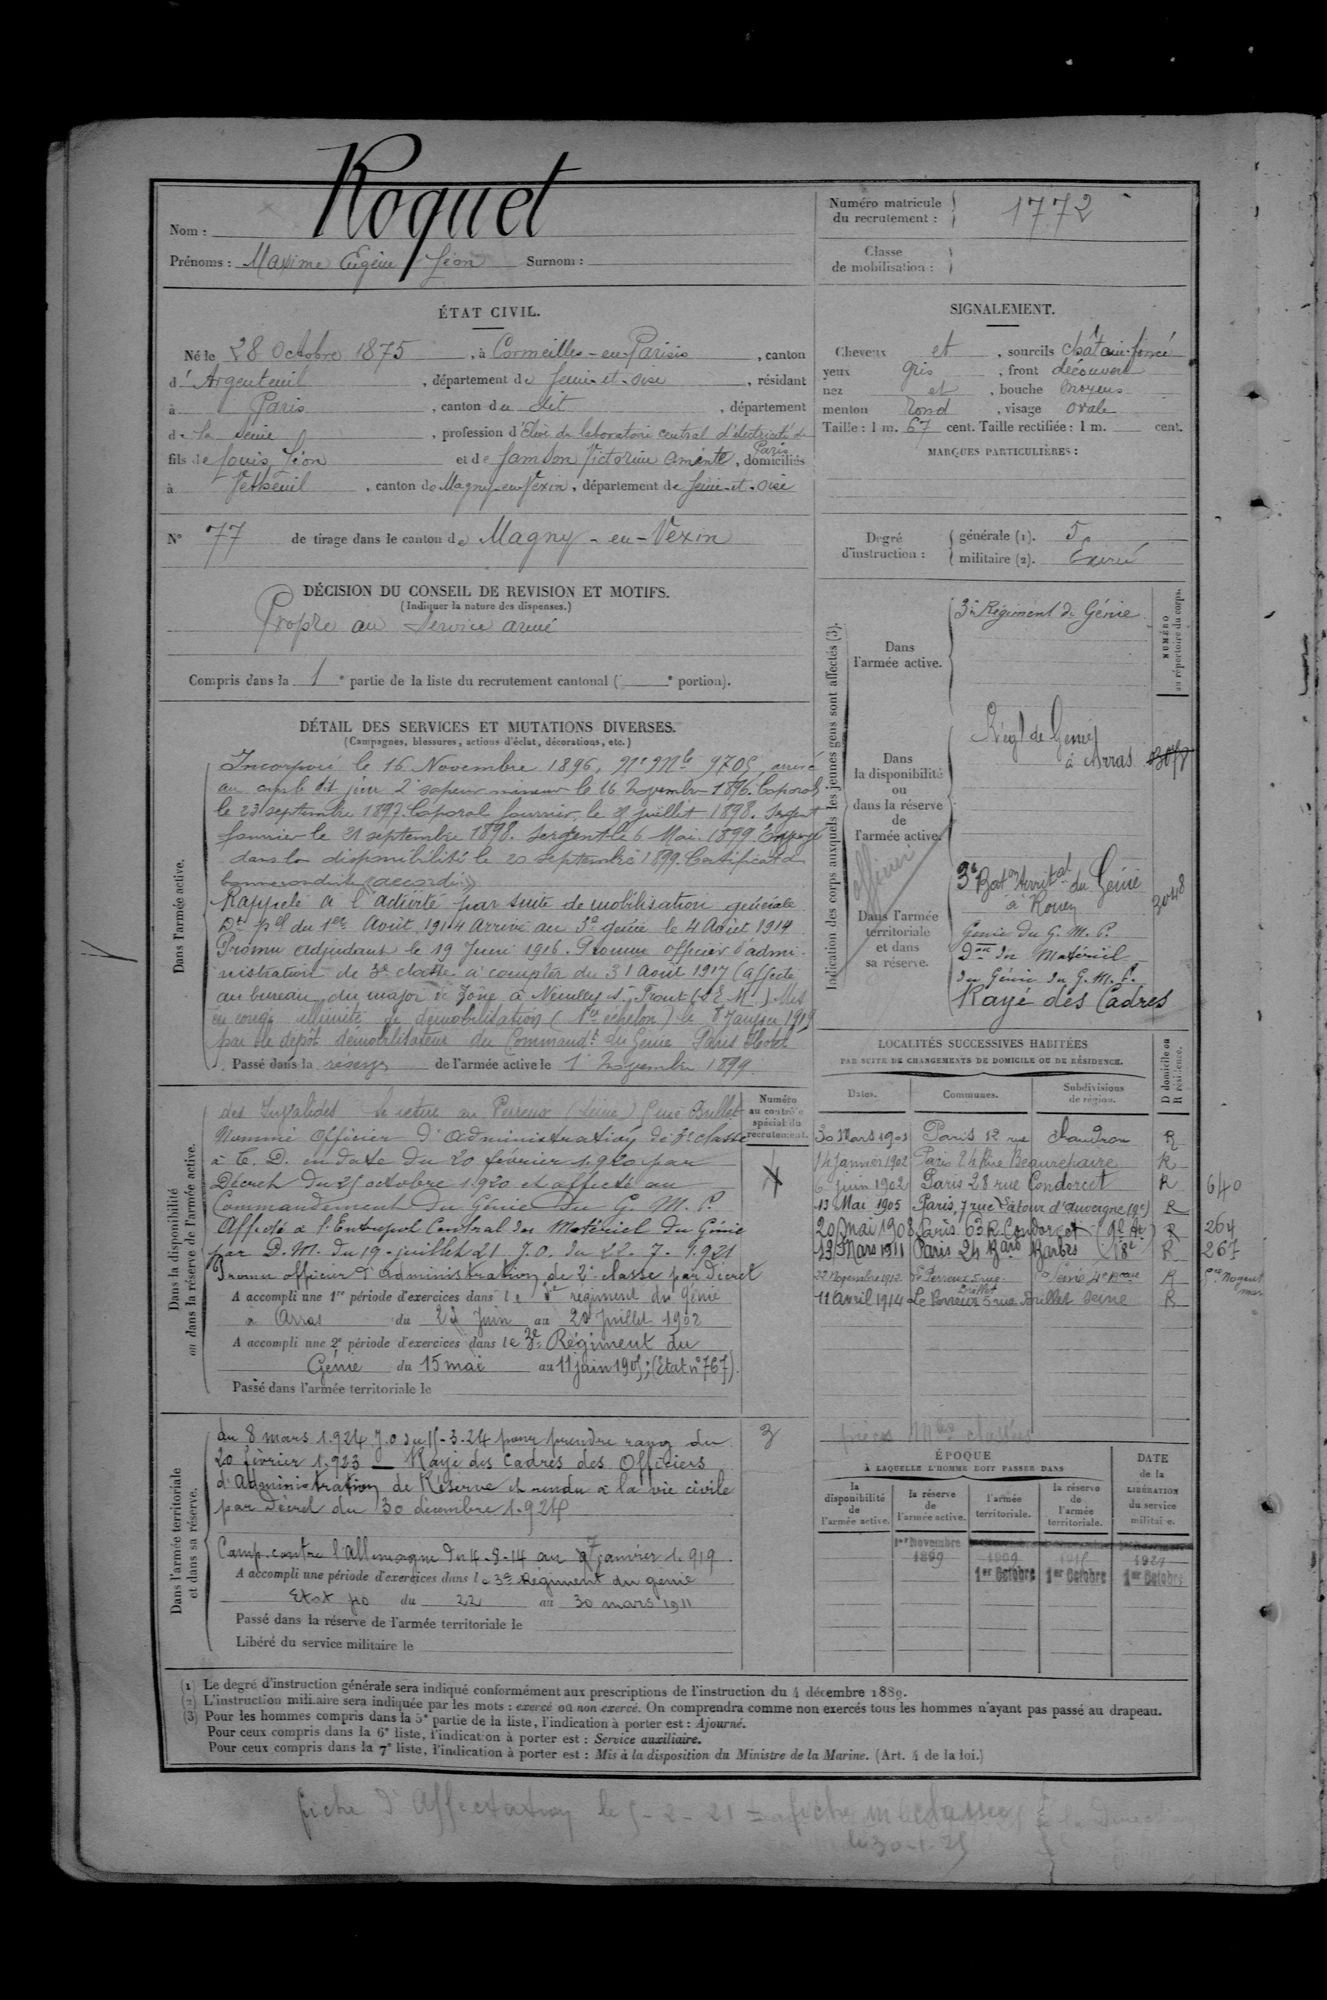 Roquet
Nom :
Prénoms : Maxime Eugène Léon Surnom :
Numéro matricule du recrutement : 1772
Classe de mobilisation :
ÉTAT CIVIL.
Né le 28 Octobre 1875, à Cormeilles-en-Parisis, canton
d'Argenteuil, département de Seine-et-Oise, résidant
à Paris, canton du dit, département
de la Seine, profession d'Elève du laboratoire central d'électricité de Paris
fils de Louis Léon et de Samson Victorine Aménte, domiciliés
à Vétheuil, canton de Magny-en-Vexin, département de Seine-et-Oise
N° 77 de tirage dans le canton de Magny-en-Vexin
DÉCISION DU CONSEIL DE REVISION ET MOTIFS.
(Indiquer la nature des dispenses.)
Propre au Service armé
Compris dans la 1e partie de la liste du recrutement cantonal ( e portion).
SIGNALEMENT.
Cheveux et, sourcils châtain foncé
yeux gris, front découvert
nez et, bouche moyens
menton rond, visage ovale
Taille : 1 m. 67 cent. Taille rectifiée : 1 m. cent.
MARQUES PARTICULIÈRES :
Degré d'instruction : générale (1). 5
militaire (2). Exercé
DÉTAIL DES SERVICES ET MUTATIONS DIVERSES.
(Campagnes, blessures, actions d'éclat, décorations, etc.)
Dans l'armée active.
Incorporé le 16 Novembre 1896, N° Mle 9705, arrivé
au corps le dit jour 2e sapeur mineur le 16 Novembre 1896. Caporal
le 23 septembre 1897. Caporal fourrier, le 8 juillet 1898. Sergent
fourrier le 21 septembre 1898. Sergent le 6 Mai 1899.
dans la disponibilité le 20 septembre 1899. Certificat de
bonne conduite "accordé"
Rappelé à l'activité par suite de mobilisation générale
Dt pel du 1er Août 1914 Arrivé au 3e génie le 4 Août 1914
Promu adjudant le 19 Juin 1916. Promu officier d'admi-
nistration de 3e classe à compter du 31 Août 1917 (affecté
au bureau du major de Zône à Neuilly St Front Mis
en congé illimité de démobilisation (1er echelon) le 8 Janvier 1919
par le dépôt démobilisateur du Commandt du Génie Paris Hotel
Passé dans la réserve de l'armée active le 1er Novembre 1899
Dans la disponibilité ou dans la réserve de l'armée active.
des Invalides Se retire au Perreux (Seine) 5 rue Brillet
Nommé Officier d'Administration de 3e classe
à T. D. en date du 20 février 1920 par
Décret du 25 octobre 1920 et affecté au
Commandement du Génie du G. M. P.
Affecté à l'Entrepot Central du Matériel du Génie
par D. M. du 19-juillet 21 J.O. du 22.7.1921
Promu officier d'administration de 2e classe par décret
A accompli une 1re période d'exercices dans le 3e régiment du Génie
à Arras du 23 Juin au 20 Juillet 1902
A accompli une 2e période d'exercices dans le 3e Régiment du
Génie du 15 mai au 11 juin 1905; (Etat n° 767).
Passé dans l'armée territoriale le
Numéro au contrôle spécial du recrutement.
Dans l'armée territoriale et dans sa réserve.
du 8 mars 1924 J.O du 15-3-24 pour prendre rang du
20 février 1923 — Rayé des cadres des Officiers
d'Administration de Réserve et rendu à la vie civile
par décret du 30 décembre 1924
3
Camp. contre l'Allemagne du 4-8-14 au 7 janvier 1919
A accompli une période d'exercices dans le 3e Régiment du génie
Etat 40 du 22 au 30 mars 1911
Passé dans la réserve de l'armée territoriale le
Libéré du service militaire le
Indication des corps auxquels les jeunes gens sont affectés (3).
NUMÉRO au répertoire du corps.
Dans l'armée active.
3e Régiment de Génie
Dans la disponibilité ou dans la réserve de l'armée active.
Régt de Génie
à Arras
officier
Dans l'armée territoriale et dans sa réserve.
3e Baton territal du Génie
à Rouen
3048
Génie du G. M. P.
Don du Matériel
du Génie du G. M. P.
Rayé des Cadres
LOCALITÉS SUCCESSIVES HABITÉES
PAR SUITE DE CHANGEMENTS DE DOMICILE OU DE RÉSIDENCE.
Dates. Communes. Subdivisions de région. D domicile ou R résidence.
30 Mars 1901 Paris 12 rue Chaudron R
14 Janvier 1902 Paris 24 Rue Beaurepaire R
6 juin 1902 Paris 28 rue Condorcet R 640
13 Mai 1905 Paris, 7 rue Latour d'Auvergne (9e) R
20 Mai 1908 Paris 63 R. Condorcet (9e At) R 264
13 Mars 1911 Paris 24 Bard Barbès 18e R 267
22 Novembre 1912 Le Perreux 5 rue Brillet Seine 4e Beau R
11 Avril 1914 Le Perreux 5 rue Brillet Seine R
pièces Mles classées
ÉPOQUE
À LAQUELLE L'HOMME DOIT PASSER DANS
la disponibilité de l'armée active. la réserve de l'armée active. l'armée territoriale. la réserve de l'armée territoriale. DATE de la LIBÉRATION du service militaire.
1er Novembre 1899 1909 1er Octobre 1915 1er Octobre 1921 1er Octobre
(1) Le degré d'instruction générale sera indiqué conformément aux prescriptions de l'instruction du 4 décembre 1889.
(2) L'instruction militaire sera indiquée par les mots : exercé ou non exercé. On comprendra comme non exercés tous les hommes n'ayant pas passé au drapeau.
(3) Pour les hommes compris dans la 5e partie de la liste, l'indication à porter est : Ajourné.
Pour ceux compris dans la 6e liste, l'indication à porter est : Service auxiliaire.
Pour ceux compris dans la 7e liste, l'indication à porter est : Mis à la disposition du Ministre de la Marine. (Art. 4 de la loi.)
fiche d'Affectation le 5-2-21